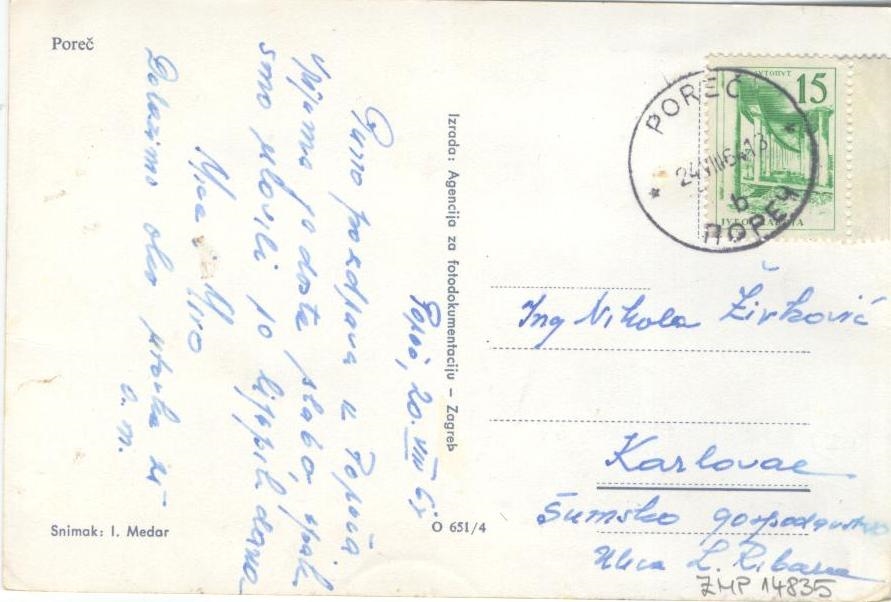 Poreč
Poreč, 20. VIII 64
Puno pozdrava iz Poreča.
Vrijeme je dosta slabo, ipak
smo ulovili 10 lijepih dana
i Miro
Dolazimo oko utorka 25
o. m.
Snimak: I. Medar
Izrada: Agencija za fotodokumentaciju – Zagreb
O 651/4
POREČ
24 VIII 64 13
b
ПОРЕЧ
15
Ing Nikola Živković
Karlovac
Šumsko gospodarstvo
Ulica L. Ribara
ZMP 14835